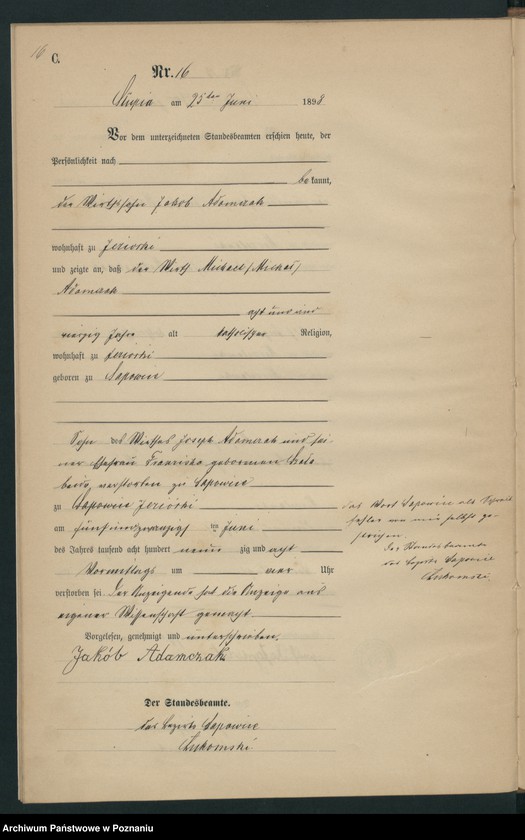 16
C.
Nr. 16
Slupia am 25ten Juni 1898
Vor dem unterzeichneten Standesbeamten erschien heute, der
Persönlichkeit nach
bekannt,
der Wirthssohn Jakob Adamczak
wohnhaft zu Jeziorki
und zeigte an, daß der Wirth Michael
Adamczak
acht und
vierzig Jahre alt katholischer Religion,
wohnhaft zu Jeziorki
geboren zu Sapowice
Sohn des Wirthes Joseph Adamczak und sei-
ner Ehefrau Franziska geborenen
beide verstorben zu Sapowice
zu Sapowice Jeziorki
am fünfundzwanzigsten Juni
des Jahres tausend acht hundert neunzig und acht
Vormittags um vier Uhr
verstorben sei. Der Anzeigende hat die Anzeige aus
eigener Wissenschaft gemacht
Vorgelesen, genehmigt und unterschrieben.
Jakób Adamczak
Der Standesbeamte.
des Bezirks Sapowice
Żukomski
das Wort Sapowice als Schreib-
fehler von mir selbst ge-
strichen.
Der Standesbeamte
des Bezirks Sapowice
Archiwum Państwowe w Poznaniu